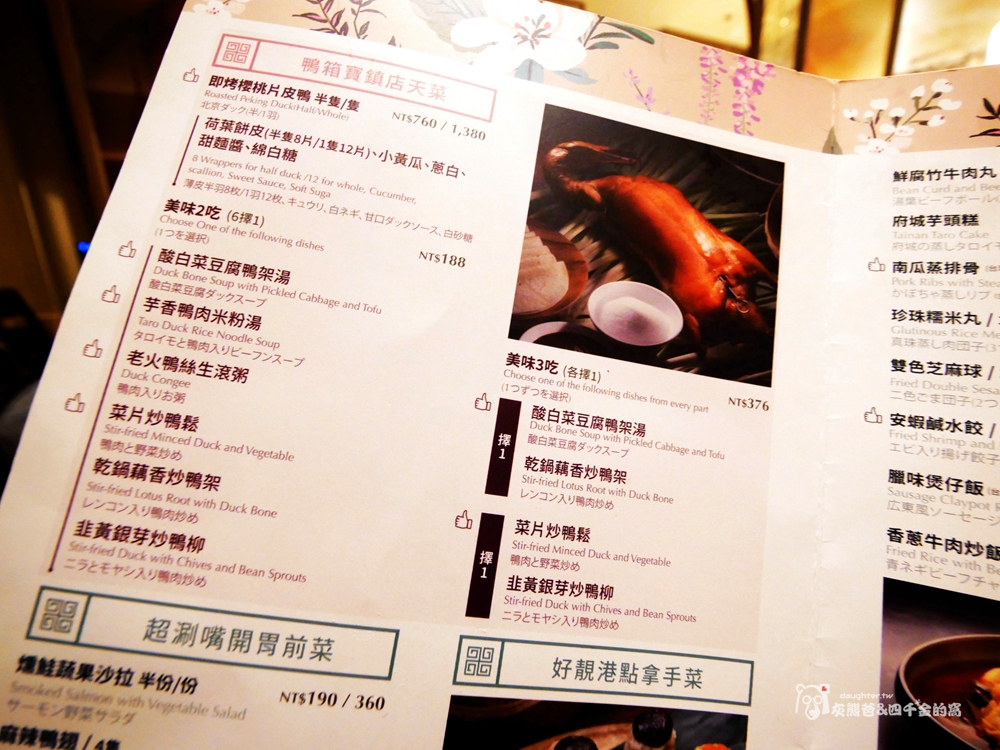 鴨箱寶鎮店天菜
即烤櫻桃片皮鴨 半隻/隻
Roasted Peking Duck(Half/Whole)
北京ダック(半/1羽)
NT$760 / 1,380
荷葉餅皮(半隻8片/1隻12片)、小黃瓜、蔥白、
甜麵醬、綿白糖
8 Wrappers for half duck /12 for whole, Cucumber,
scallion. Sweet Sauce, Soft Suga
薄皮半羽8枚/1羽12枚、キュウリ、白ネギ、甘口ダックソース、白砂糖
美味2吃 (6擇1)
Choose One of the following dishes
(1つを選択)
NT$188
酸白菜豆腐鴨架湯
Duck Bone Soup with Pickled Cabbage and Tofu
酸白菜豆腐ダックスープ
芋香鴨肉米粉湯
Taro Duck Rice Noodle Soup
タロイモと鴨肉入りビーフンスープ
老火鴨絲生滾粥
Duck Congee
鴨肉入りお粥
菜片炒鴨鬆
Stir-fried Minced Duck and Vegetable
鴨肉と野菜炒め
乾鍋藕香炒鴨架
Stir-fried Lotus Root with Duck Bone
レンコン入り鴨肉炒め
韭黃銀芽炒鴨柳
Stir-fried Duck with Chives and Bean Sprouts
ニラとモヤシ入り鴨肉炒め
超涮嘴開胃前菜
燻鮭蔬果沙拉 半份/份
Smoked Salmon with Vegetable Salad
サーモン野菜サラダ
NT$190 / 360
麻辣鴨翅 / 4隻
美味3吃 (各擇1)
Choose one of the following dishes from every part
(1つずつを選択)
NT$376
擇1
酸白菜豆腐鴨架湯
Duck Bone Soup with Pickled Cabbage and Tofu
酸白菜豆腐ダックスープ
乾鍋藕香炒鴨架
Stir-fried Lotus Root with Duck Bone
レンコン入り鴨肉炒め
擇1
菜片炒鴨鬆
Stir-fried Minced Duck and Vegetable
鴨肉と野菜炒め
韭黃銀芽炒鴨柳
Stir-fried Duck with Chives and Bean Sprouts
ニラとモヤシ入り鴨肉炒め
好靚港點拿手菜
鮮腐竹牛肉丸
Bean Curd and Bee
湯葉ビーフボール
府城芋頭糕
Tainan Taro Cake
府城の蒸しタロイモ
南瓜蒸排骨
Pork Ribs with Ste
かぼちゃ蒸しリブ
珍珠糯米丸 /
Glutinous Rice Me
真珠蒸し肉団子
雙色芝麻球 /
Fried Double Sesa
二色ごま団子(2つ
安蝦鹹水餃 /
Fried Shrimp and
エビ入り揚げ餃子
臘味煲仔飯
Sausage Claypot
広東風ソーセージ
香蔥牛肉炒飯
Fried Rice with Be
青ネギビーフチャ
daughter.tw
灰熊爸&四千金的窩